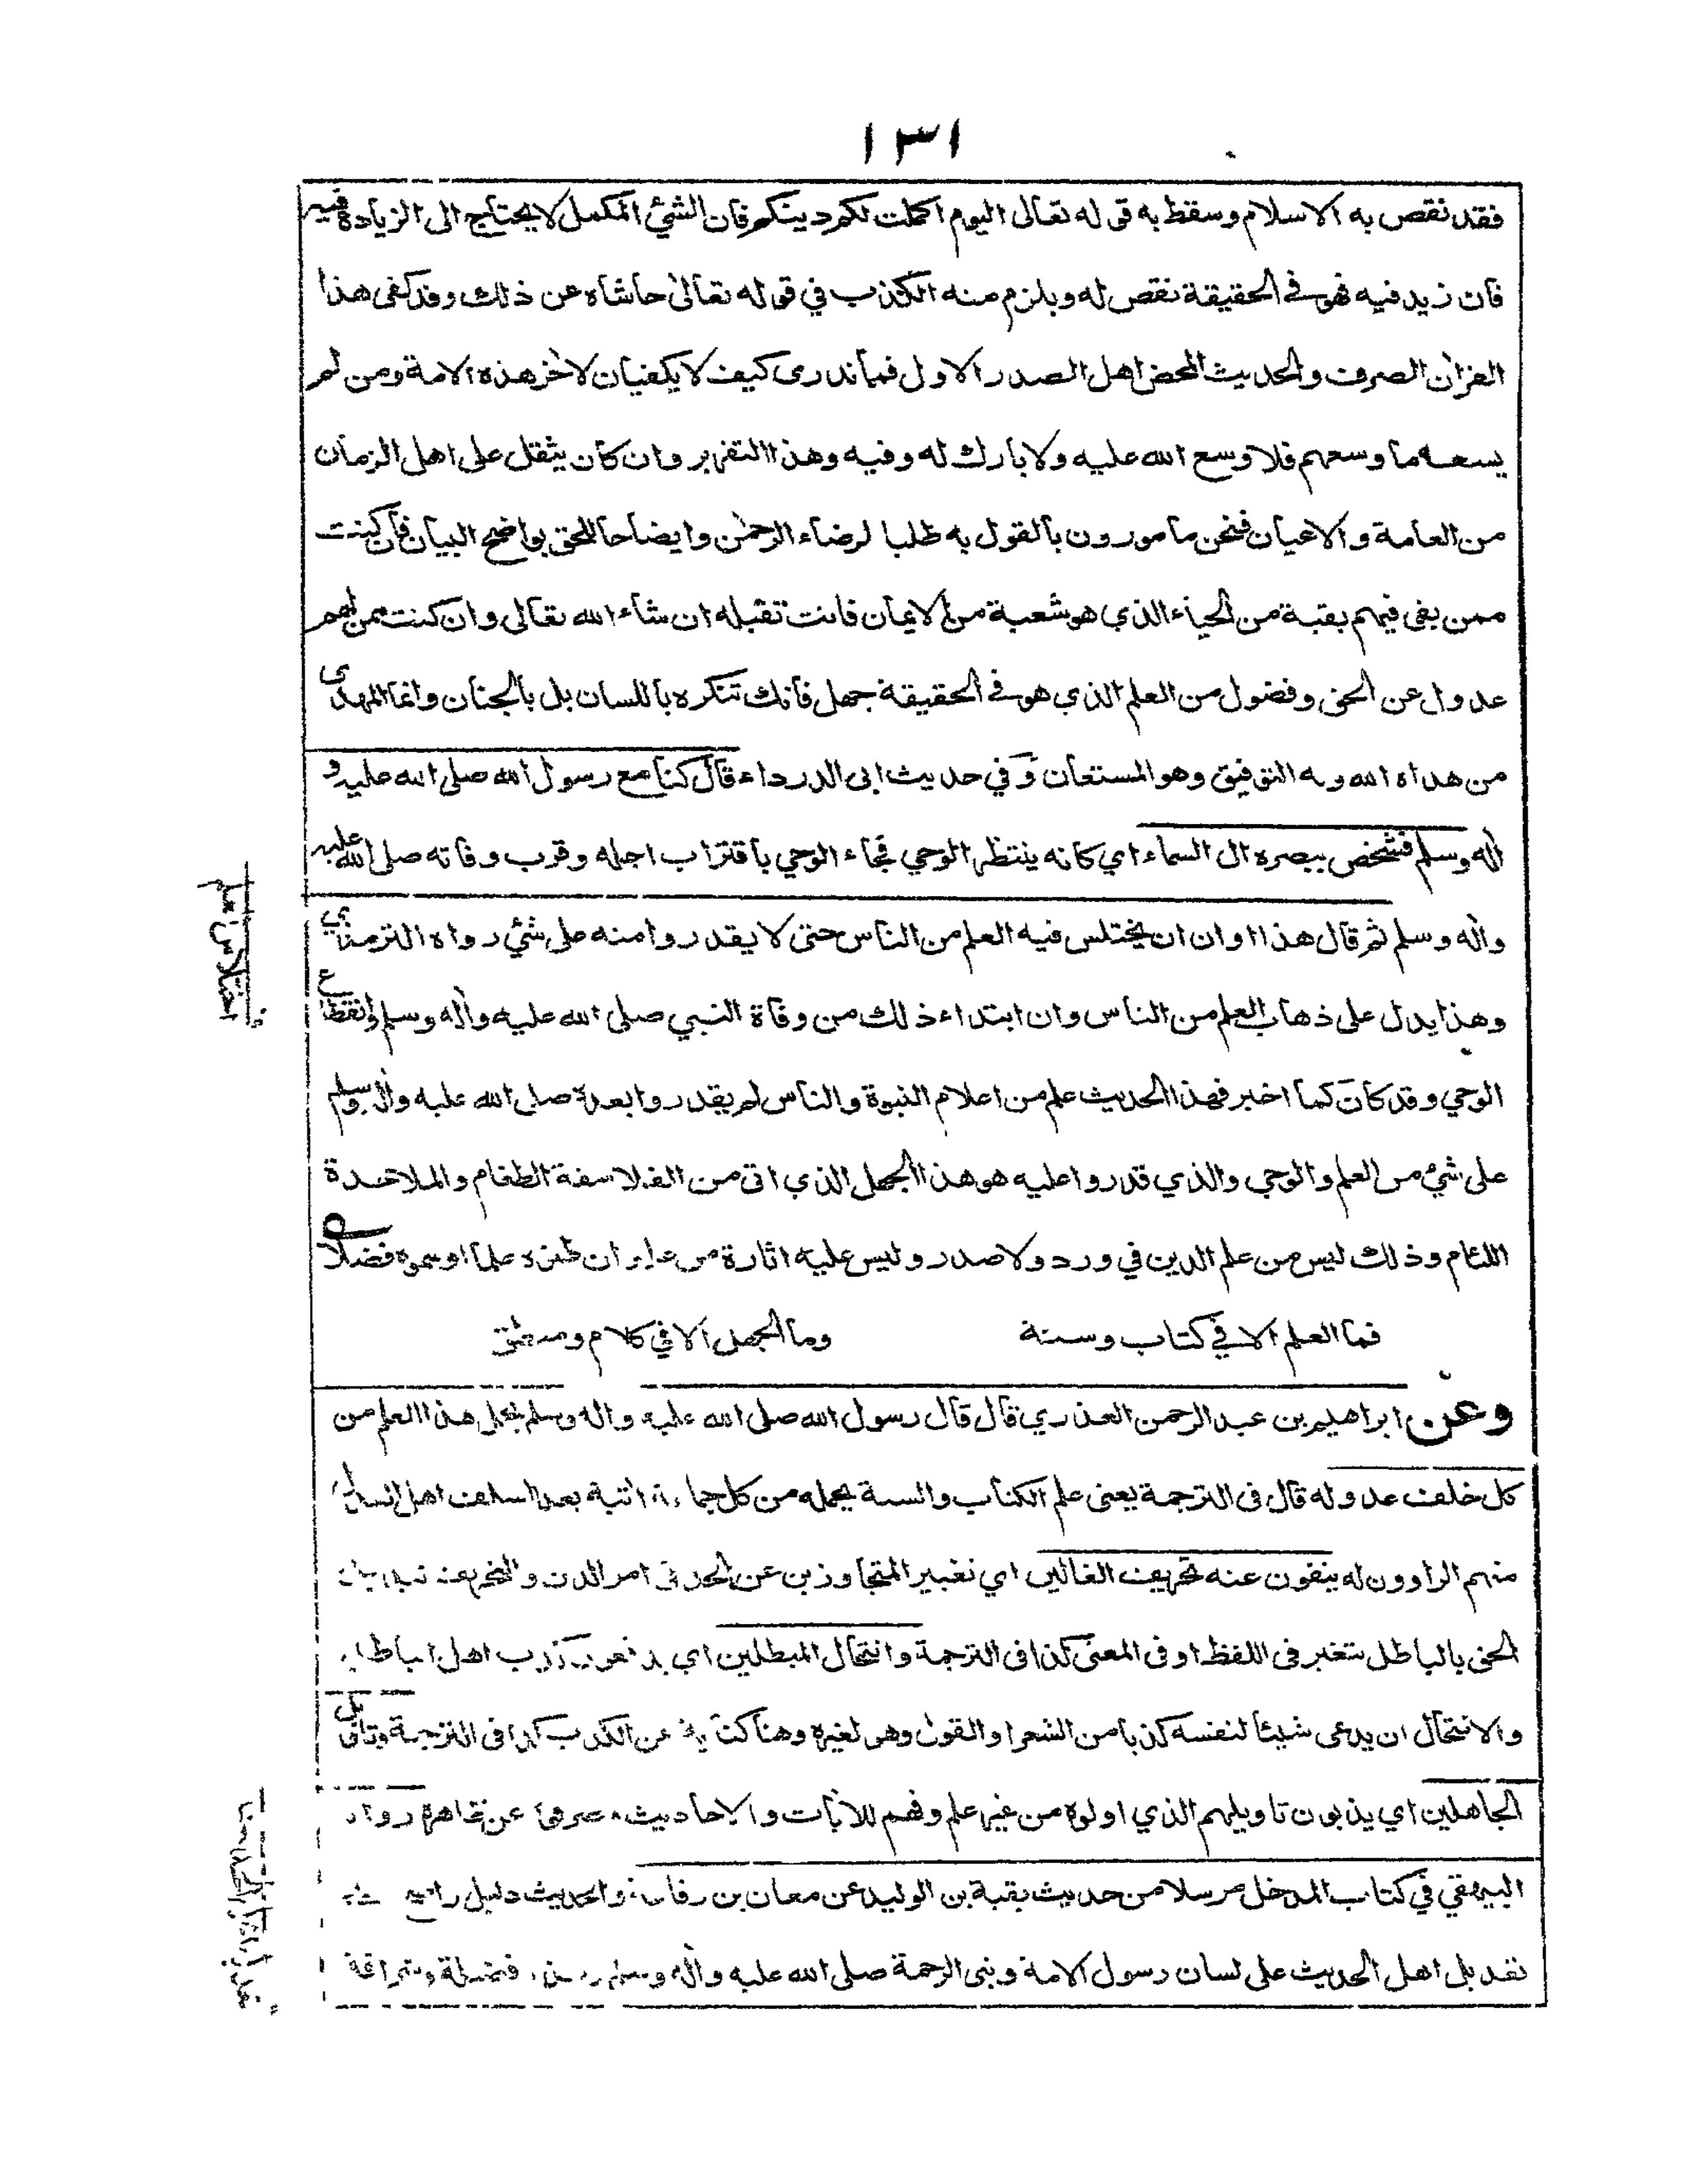 ١٣١
فقد نقص به الاسلام وسقط به قوله تعالى اليوم اكملت لكم دينكم فان الشيئ المكمل لا يحتاج الى الزيادة فيه
فان زيد فيه فهو في الحقيقة نقص له ويلزم منه الكذب في قوله تعالى حاشاه عن ذلك وقد كفى هذا
القران الصرف والحديث المحض اهل الصدر الاول فما ندرى كيف لا يكفيان لاخر هذه الامة ومن لم
يسعه ما وسعهم فلا وسع الله عليه ولا بارك له وفيه وهذا التقرير وان كان يثقل على اهل الزمان
من العامة والاعيان فنحن مامورون بالقول به طلبا لرضاء الرحمٰن وايضاحا للحق بواضح البيان فان كنت
ممن بقى فيهم بقية من الحياء الذي هو شعبة من الايمان فانت تقبله ان شاء الله تعالى وان كنت ممن لهم
عدول عن الحق وفضول من العلم الذي هو في الحقيقة جهل فانك تنكره باللسان بل بالجنان وانما المهدى
من هداه الله وبه التوفيق وهو المستعان وفي حديث ابى الدرداء قال كنا مع رسول الله صلى الله عليه و
اله وسلم فشخص ببصره ال السماء اي كانه ينتظر الوحي فجاء الوحي باقتراب اجله وقرب وفاته صلى الله عليه
واله وسلم ثم قال هذا اوان ان يختلس فيه العلم من الناس حتى لا يقدروا منه على شئ رواه الترمذي
وهذا يدل على ذهاب العلم من الناس وان ابتداء ذلك من وفاة النبي صلى الله عليه واٰله وسلم وانقطاع
الوحي وقد كان كما اخبر فهذا الحديث علم من اعلام النبوة والناس لم يقدروا بعده صلى الله عليه واٰله وسلم
على شئ من العلم والوحي والذي قدروا عليه هو هذا الجهل الذي اتى من الفلاسفة الطغام والملاحدة
اللئام وذلك ليس من علم الدين في ورد ولا صدر وليس عليه اثارة من علم وان ظنوه علما او سموه فضلا
فما العلم الا في كتاب وسنة وما الجهل الا في كلام ومنطق
وعن ابراهيم بن عبد الرحمن العذري قال قال رسول الله صلى الله عليه واله وسلم يحمل هذا العلم من
كل خلف عدوله قال فى الترجمة يعنى علم الكتاب والسنة يحمله من كل جماعة اتية بعد السلف اهل العدل
منهم الراوون له ينفون عنه تحريف الغالين اي تغيير المتجاوزين عن الحد في امر الدين والتحريف تبديل
الحق بالباطل بتغير فى اللفظ او فى المعنى كذا فى الترجمة وانتحال المبطلين اي كذب اهل الباطل
والانتحال ان يدعى شيئا لنفسه كذبا من الشعر او القول وهو لغيره وهنا كناية عن الكذب كذا فى الترجمة وتاويل
الجاهلين اي يذبون تاويلهم الذي اولوه من غير علم وفهم للاٰيات والاحاديث وصرفها عن ظاهرها رواه
البيهقي في كتاب المدخل مرسلا من حديث بقية بن الوليد عن معان بن رفاعة والحديث دليل على
تعديل اهل الحديث على لسان رسول الامة ونبى الرحمة صلى الله عليه واٰله وسلم فضيلة وشرافة
اختلاس العلم